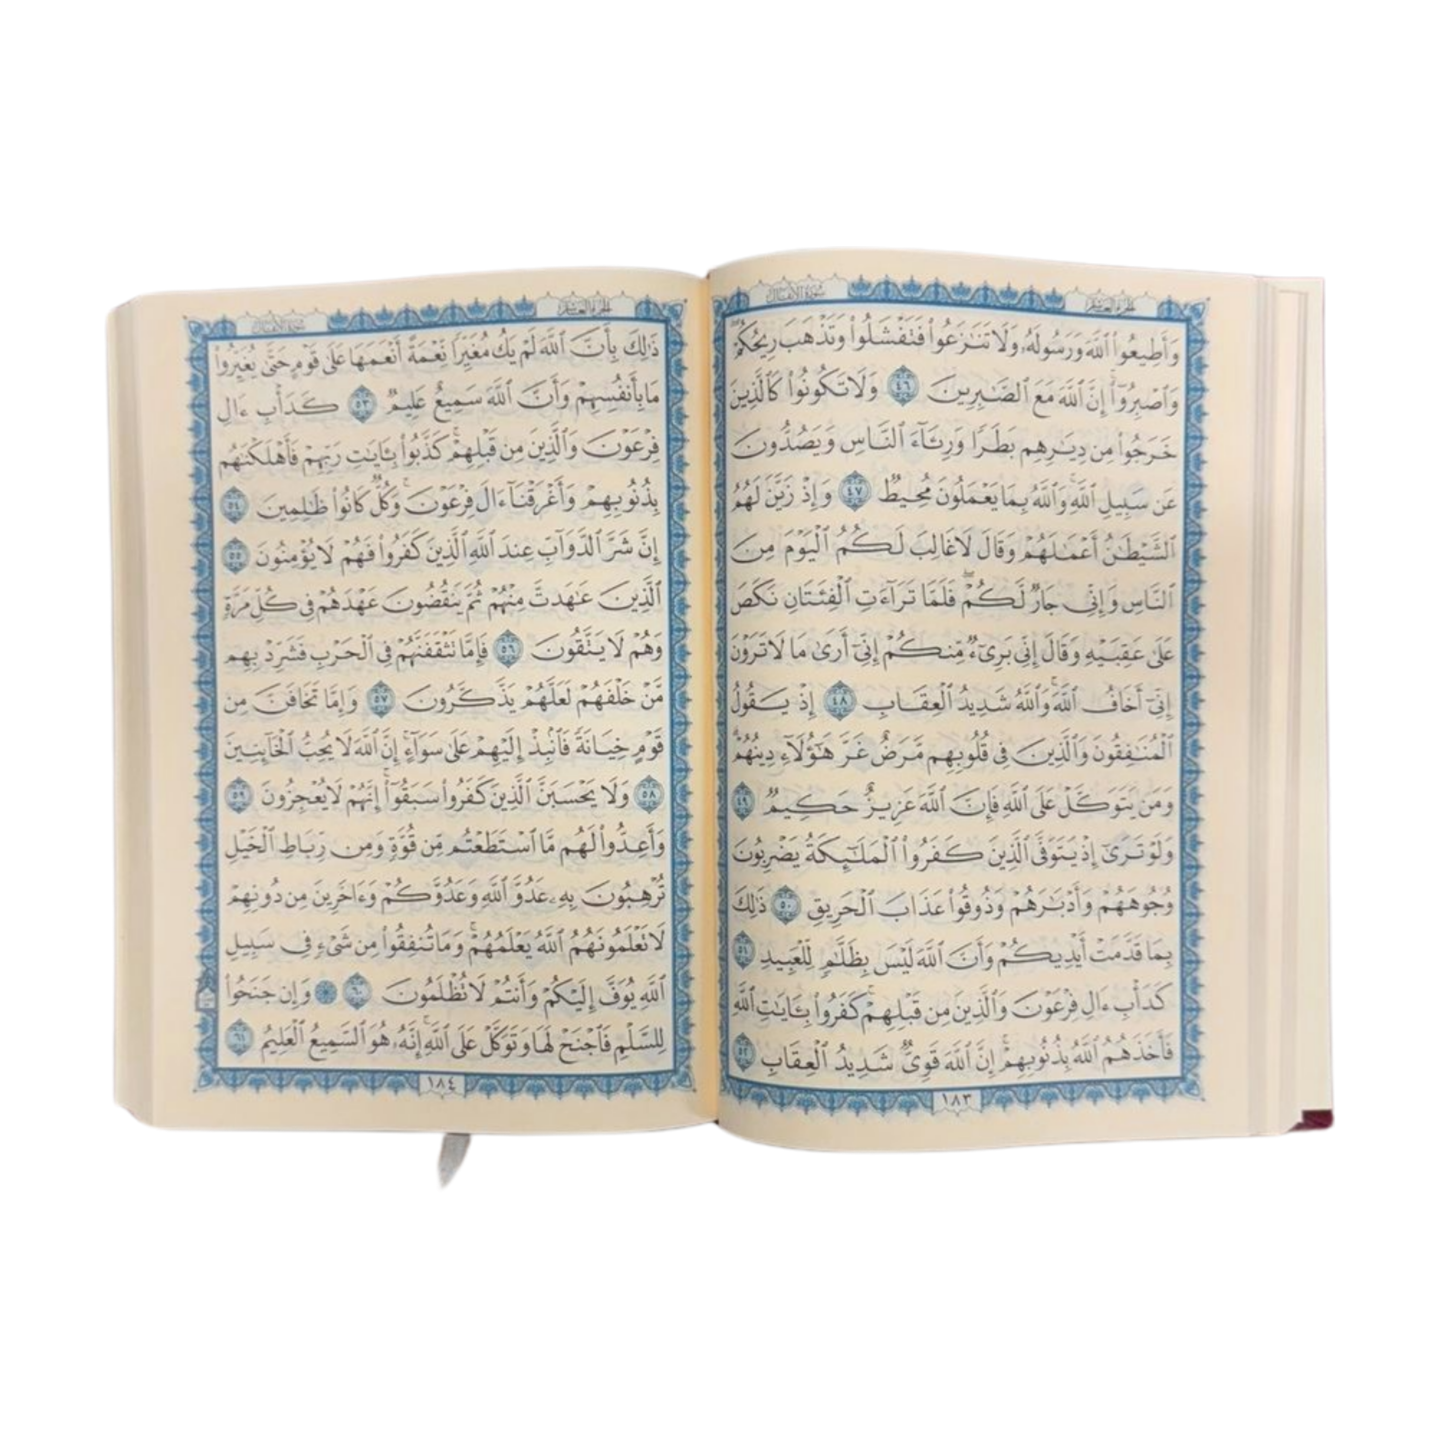 سورة الأنفال
الجزء العاشر
وَأَطِيعُوا۟ ٱللَّهَ وَرَسُولَهُۥ وَلَا تَنَٰزَعُوا۟ فَتَفْشَلُوا۟ وَتَذْهَبَ رِيحُكُمْ ۖ
وَٱصْبِرُوٓا۟ ۚ إِنَّ ٱللَّهَ مَعَ ٱلصَّٰبِرِينَ ٤٦ وَلَا تَكُونُوا۟ كَٱلَّذِينَ
خَرَجُوا۟ مِن دِيَٰرِهِم بَطَرًا وَرِئَآءَ ٱلنَّاسِ وَيَصُدُّونَ
عَن سَبِيلِ ٱللَّهِ ۚ وَٱللَّهُ بِمَا يَعْمَلُونَ مُحِيطٌ ٤٧ وَإِذْ زَيَّنَ لَهُمُ
ٱلشَّيْطَٰنُ أَعْمَٰلَهُمْ وَقَالَ لَا غَالِبَ لَكُمُ ٱلْيَوْمَ مِنَ
ٱلنَّاسِ وَإِنِّى جَارٌ لَّكُمْ ۖ فَلَمَّا تَرَآءَتِ ٱلْفِئَتَانِ نَكَصَ
عَلَىٰ عَقِبَيْهِ وَقَالَ إِنِّى بَرِىٓءٌ مِّنكُمْ إِنِّىٓ أَرَىٰ مَا لَا تَرَوْنَ
إِنِّىٓ أَخَافُ ٱللَّهَ ۚ وَٱللَّهُ شَدِيدُ ٱلْعِقَابِ ٤٨ إِذْ يَقُولُ
ٱلْمُنَٰفِقُونَ وَٱلَّذِينَ فِى قُلُوبِهِم مَّرَضٌ غَرَّ هَٰٓؤُلَآءِ دِينُهُمْ ۗ
وَمَن يَتَوَكَّلْ عَلَى ٱللَّهِ فَإِنَّ ٱللَّهَ عَزِيزٌ حَكِيمٌ ٤٩
وَلَوْ تَرَىٰٓ إِذْ يَتَوَفَّى ٱلَّذِينَ كَفَرُوا۟ ٱلْمَلَٰٓئِكَةُ يَضْرِبُونَ
وُجُوهَهُمْ وَأَدْبَٰرَهُمْ وَذُوقُوا۟ عَذَابَ ٱلْحَرِيقِ ٥٠ ذَٰلِكَ
بِمَا قَدَّمَتْ أَيْدِيكُمْ وَأَنَّ ٱللَّهَ لَيْسَ بِظَلَّٰمٍ لِّلْعَبِيدِ ٥١
كَدَأْبِ ءَالِ فِرْعَوْنَ وَٱلَّذِينَ مِن قَبْلِهِمْ ۚ كَفَرُوا۟ بِـَٔايَٰتِ ٱللَّهِ
فَأَخَذَهُمُ ٱللَّهُ بِذُنُوبِهِمْ ۗ إِنَّ ٱللَّهَ قَوِىٌّ شَدِيدُ ٱلْعِقَابِ ٥٢
١٨٣
الجزء العاشر
سورة الأنفال
ذَٰلِكَ بِأَنَّ ٱللَّهَ لَمْ يَكُ مُغَيِّرًا نِّعْمَةً أَنْعَمَهَا عَلَىٰ قَوْمٍ حَتَّىٰ يُغَيِّرُوا۟
مَا بِأَنفُسِهِمْ وَأَنَّ ٱللَّهَ سَمِيعٌ عَلِيمٌ ٥٣ كَدَأْبِ ءَالِ
فِرْعَوْنَ وَٱلَّذِينَ مِن قَبْلِهِمْ ۚ كَذَّبُوا۟ بِـَٔايَٰتِ رَبِّهِمْ فَأَهْلَكْنَٰهُم
بِذُنُوبِهِمْ وَأَغْرَقْنَآ ءَالَ فِرْعَوْنَ ۚ وَكُلٌّ كَانُوا۟ ظَٰلِمِينَ ٥٤
إِنَّ شَرَّ ٱلدَّوَآبِّ عِندَ ٱللَّهِ ٱلَّذِينَ كَفَرُوا۟ فَهُمْ لَا يُؤْمِنُونَ ٥٥
ٱلَّذِينَ عَٰهَدتَّ مِنْهُمْ ثُمَّ يَنقُضُونَ عَهْدَهُمْ فِى كُلِّ مَرَّةٍ
وَهُمْ لَا يَتَّقُونَ ٥٦ فَإِمَّا تَثْقَفَنَّهُمْ فِى ٱلْحَرْبِ فَشَرِّدْ بِهِم
مَّنْ خَلْفَهُمْ لَعَلَّهُمْ يَذَّكَّرُونَ ٥٧ وَإِمَّا تَخَافَنَّ مِن
قَوْمٍ خِيَانَةً فَٱنۢبِذْ إِلَيْهِمْ عَلَىٰ سَوَآءٍ ۚ إِنَّ ٱللَّهَ لَا يُحِبُّ ٱلْخَآئِنِينَ
٥٨ وَلَا يَحْسَبَنَّ ٱلَّذِينَ كَفَرُوا۟ سَبَقُوٓا۟ ۚ إِنَّهُمْ لَا يُعْجِزُونَ ٥٩
وَأَعِدُّوا۟ لَهُم مَّا ٱسْتَطَعْتُم مِّن قُوَّةٍ وَمِن رِّبَاطِ ٱلْخَيْلِ
تُرْهِبُونَ بِهِۦ عَدُوَّ ٱللَّهِ وَعَدُوَّكُمْ وَءَاخَرِينَ مِن دُونِهِمْ
لَا تَعْلَمُونَهُمُ ٱللَّهُ يَعْلَمُهُمْ ۚ وَمَا تُنفِقُوا۟ مِن شَىْءٍ فِى سَبِيلِ
ٱللَّهِ يُوَفَّ إِلَيْكُمْ وَأَنتُمْ لَا تُظْلَمُونَ ٦٠ وَإِن جَنَحُوا۟
لِلسَّلْمِ فَٱجْنَحْ لَهَا وَتَوَكَّلْ عَلَى ٱللَّهِ ۚ إِنَّهُۥ هُوَ ٱلسَّمِيعُ ٱلْعَلِيمُ ٦١
١٨٤